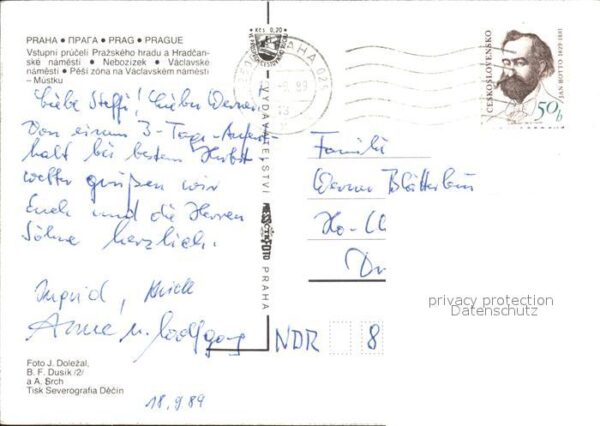 PRAHA • ПРАГА • PRAG • PRAGUE
Vstupní průčelí Pražského hradu a Hradčan-
ské náměstí • Nebozízek • Václavské
náměstí • Pěší zóna na Václavském náměstí
– Můstku
Liebe Steffi, Lieber Werner!
Von einem 3-Tage-Aufent-
halt bei bestem Herbst-
wetter grüßen wir
Euch und die Herren
Söhne herzlich.
Ingrid,
Anne u. Wolfgang
Foto J. Doležal,
B. F. Dusík /2/
a A. Srch
Tisk Severografia Děčín
18.9.89
Kčs 0,20
VYDAVATELSTVÍ
PRESSFOTO
PRAHA
PRAHA
89
13
ČESKOSLOVENSKO
JÁN BOTTO 1829-1881
50h
Familie
Werner
Ho-Ch
Dr
NDR 8
privacy protection
Datenschutz